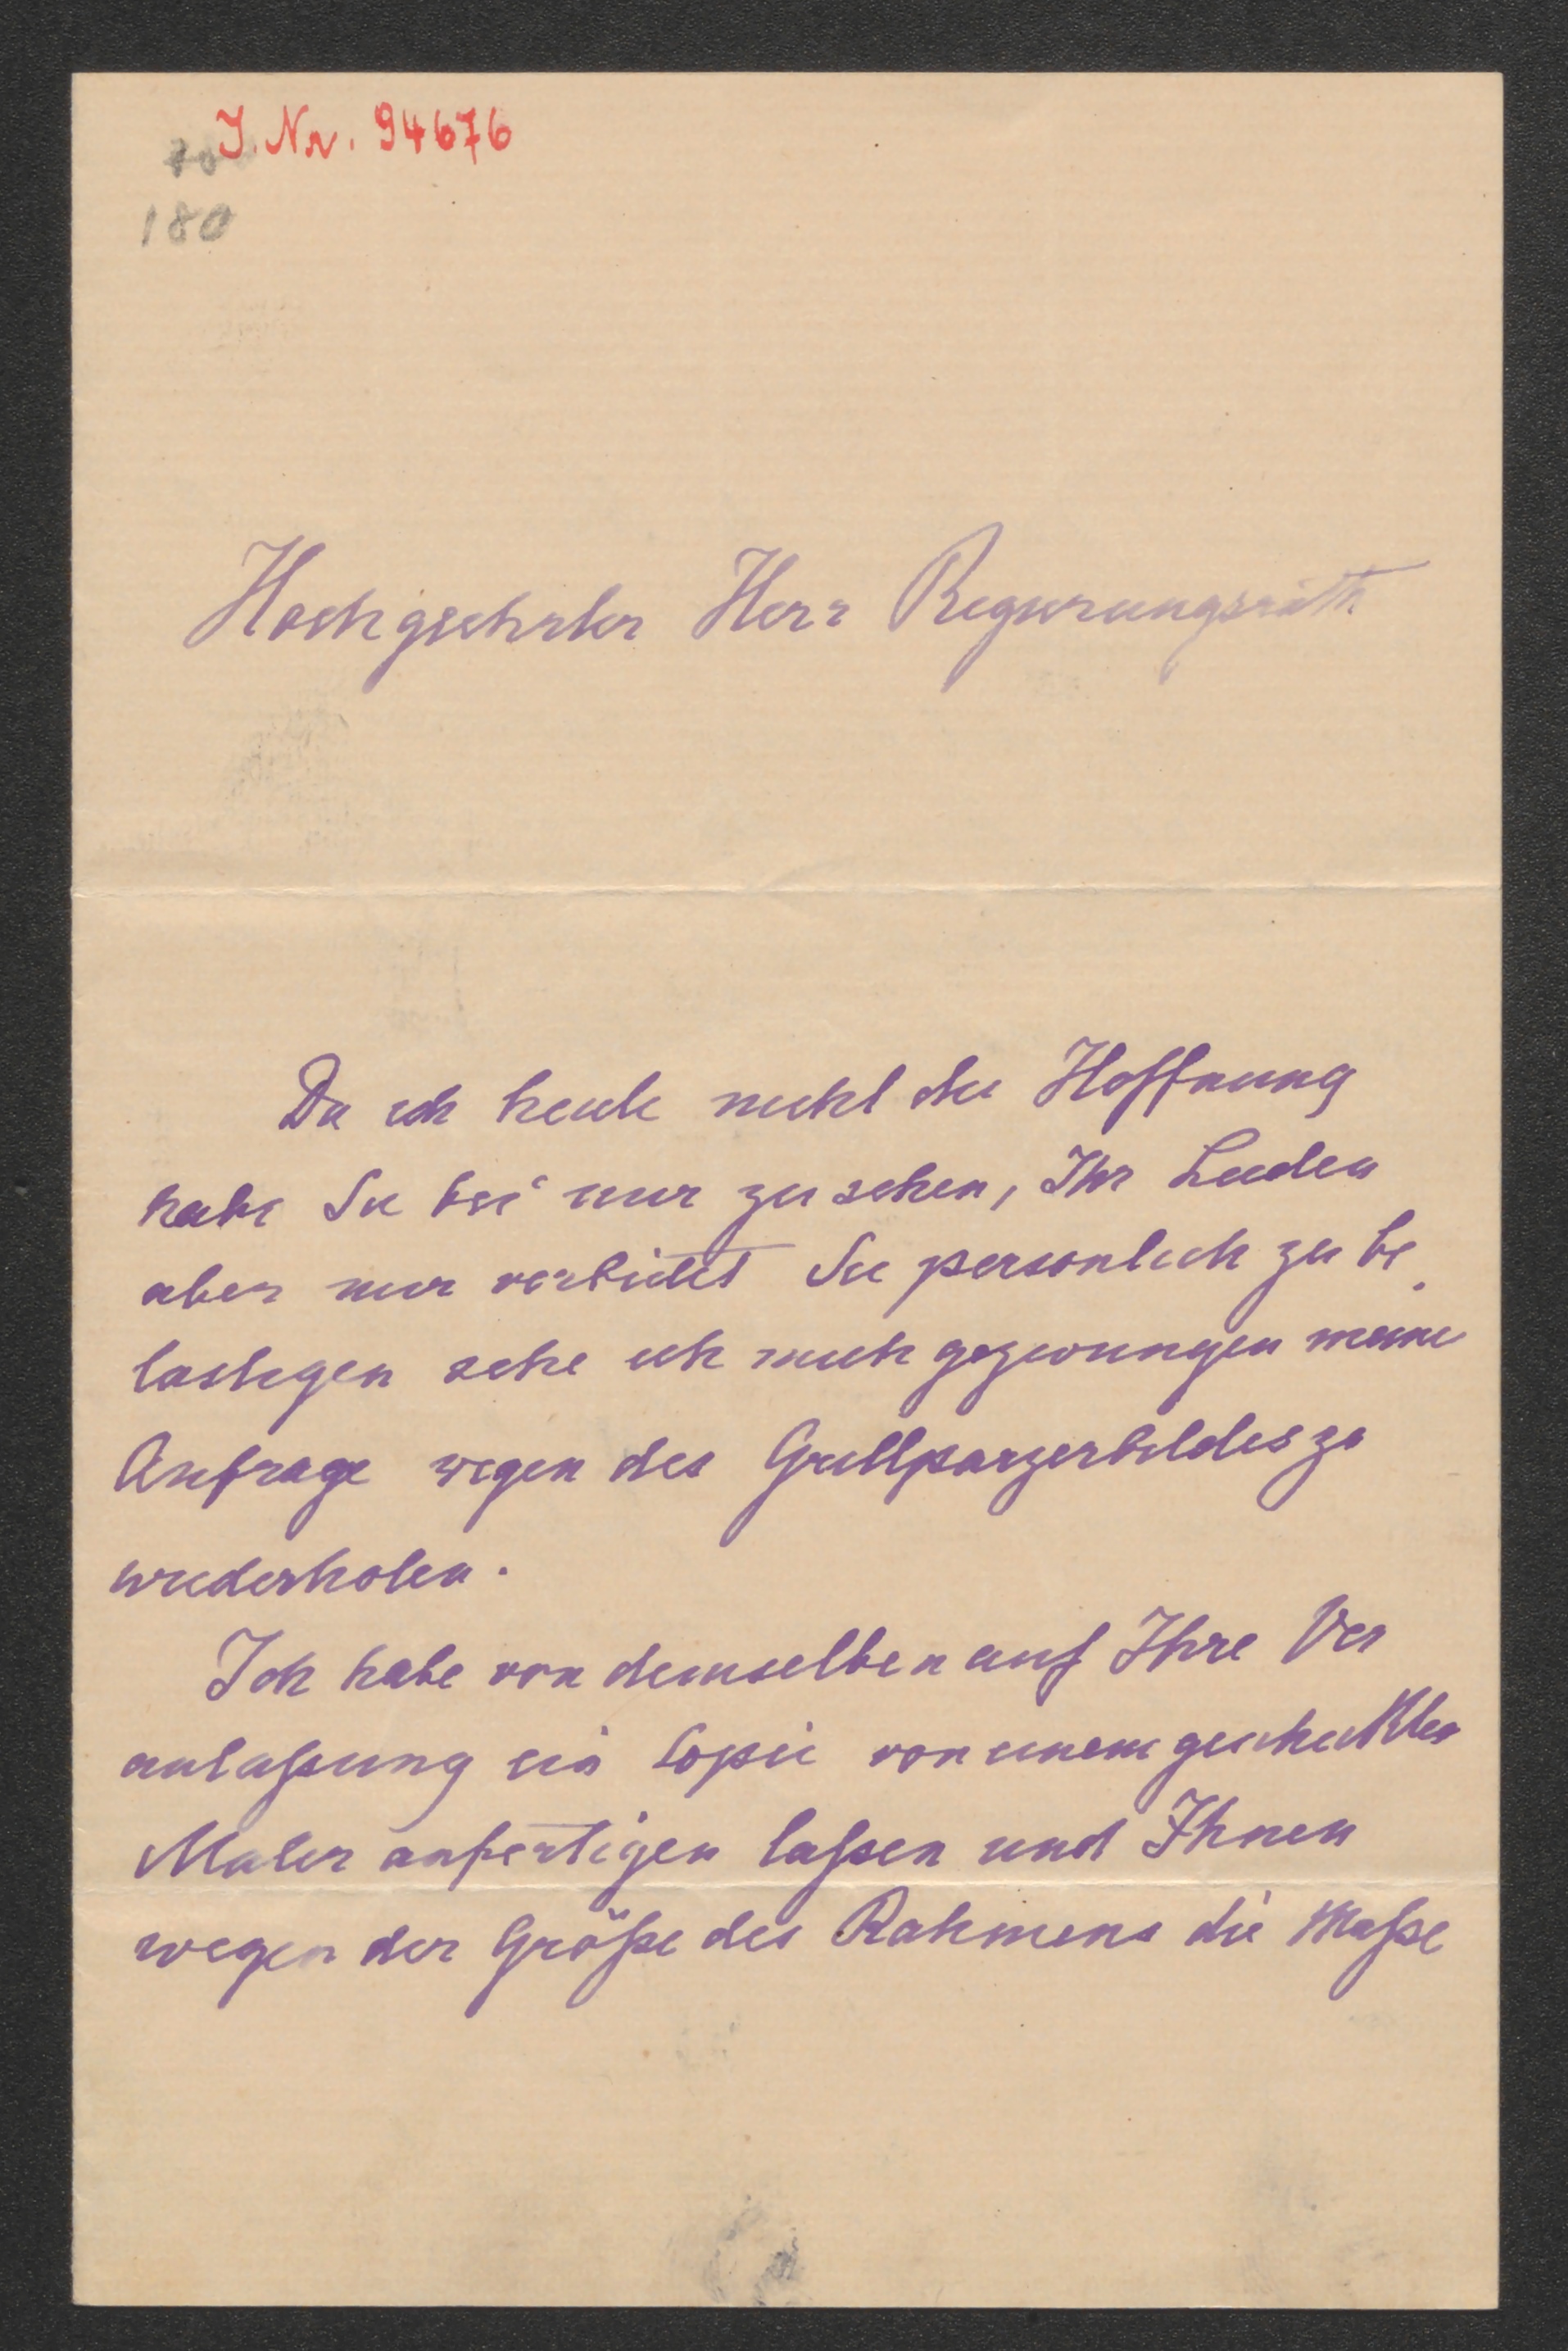 J. Nr. 94676
180
Hochgeehrter Herr Regierungsrath
Da ich heute nicht die Hoffnung
habe Sie bei mir zu sehen, Ihr Leiden
aber mir verbietet Sie persönlich zu be
lästigen sehe ich mich gezwungen meine
Anfrage wegen des Grillparzerbildes zu
wiederholen.
Ich habe von demselben auf Ihre Ver
anlaßung ein Copie von einem geschickten
Maler anfertigen laßen und Ihnen
wegen der Größe des Rahmens die Maße